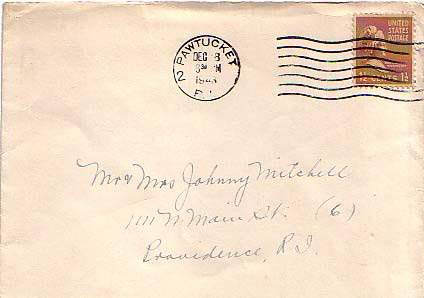 PAWTUCKET
2
DEC 8
PM
R.I.
UNITED
STATES
POSTAGE
1½ CENTS 1½
Mr & Mrs Johnny Mitchell
111 N. Main St. (6)
Providence, R.I.